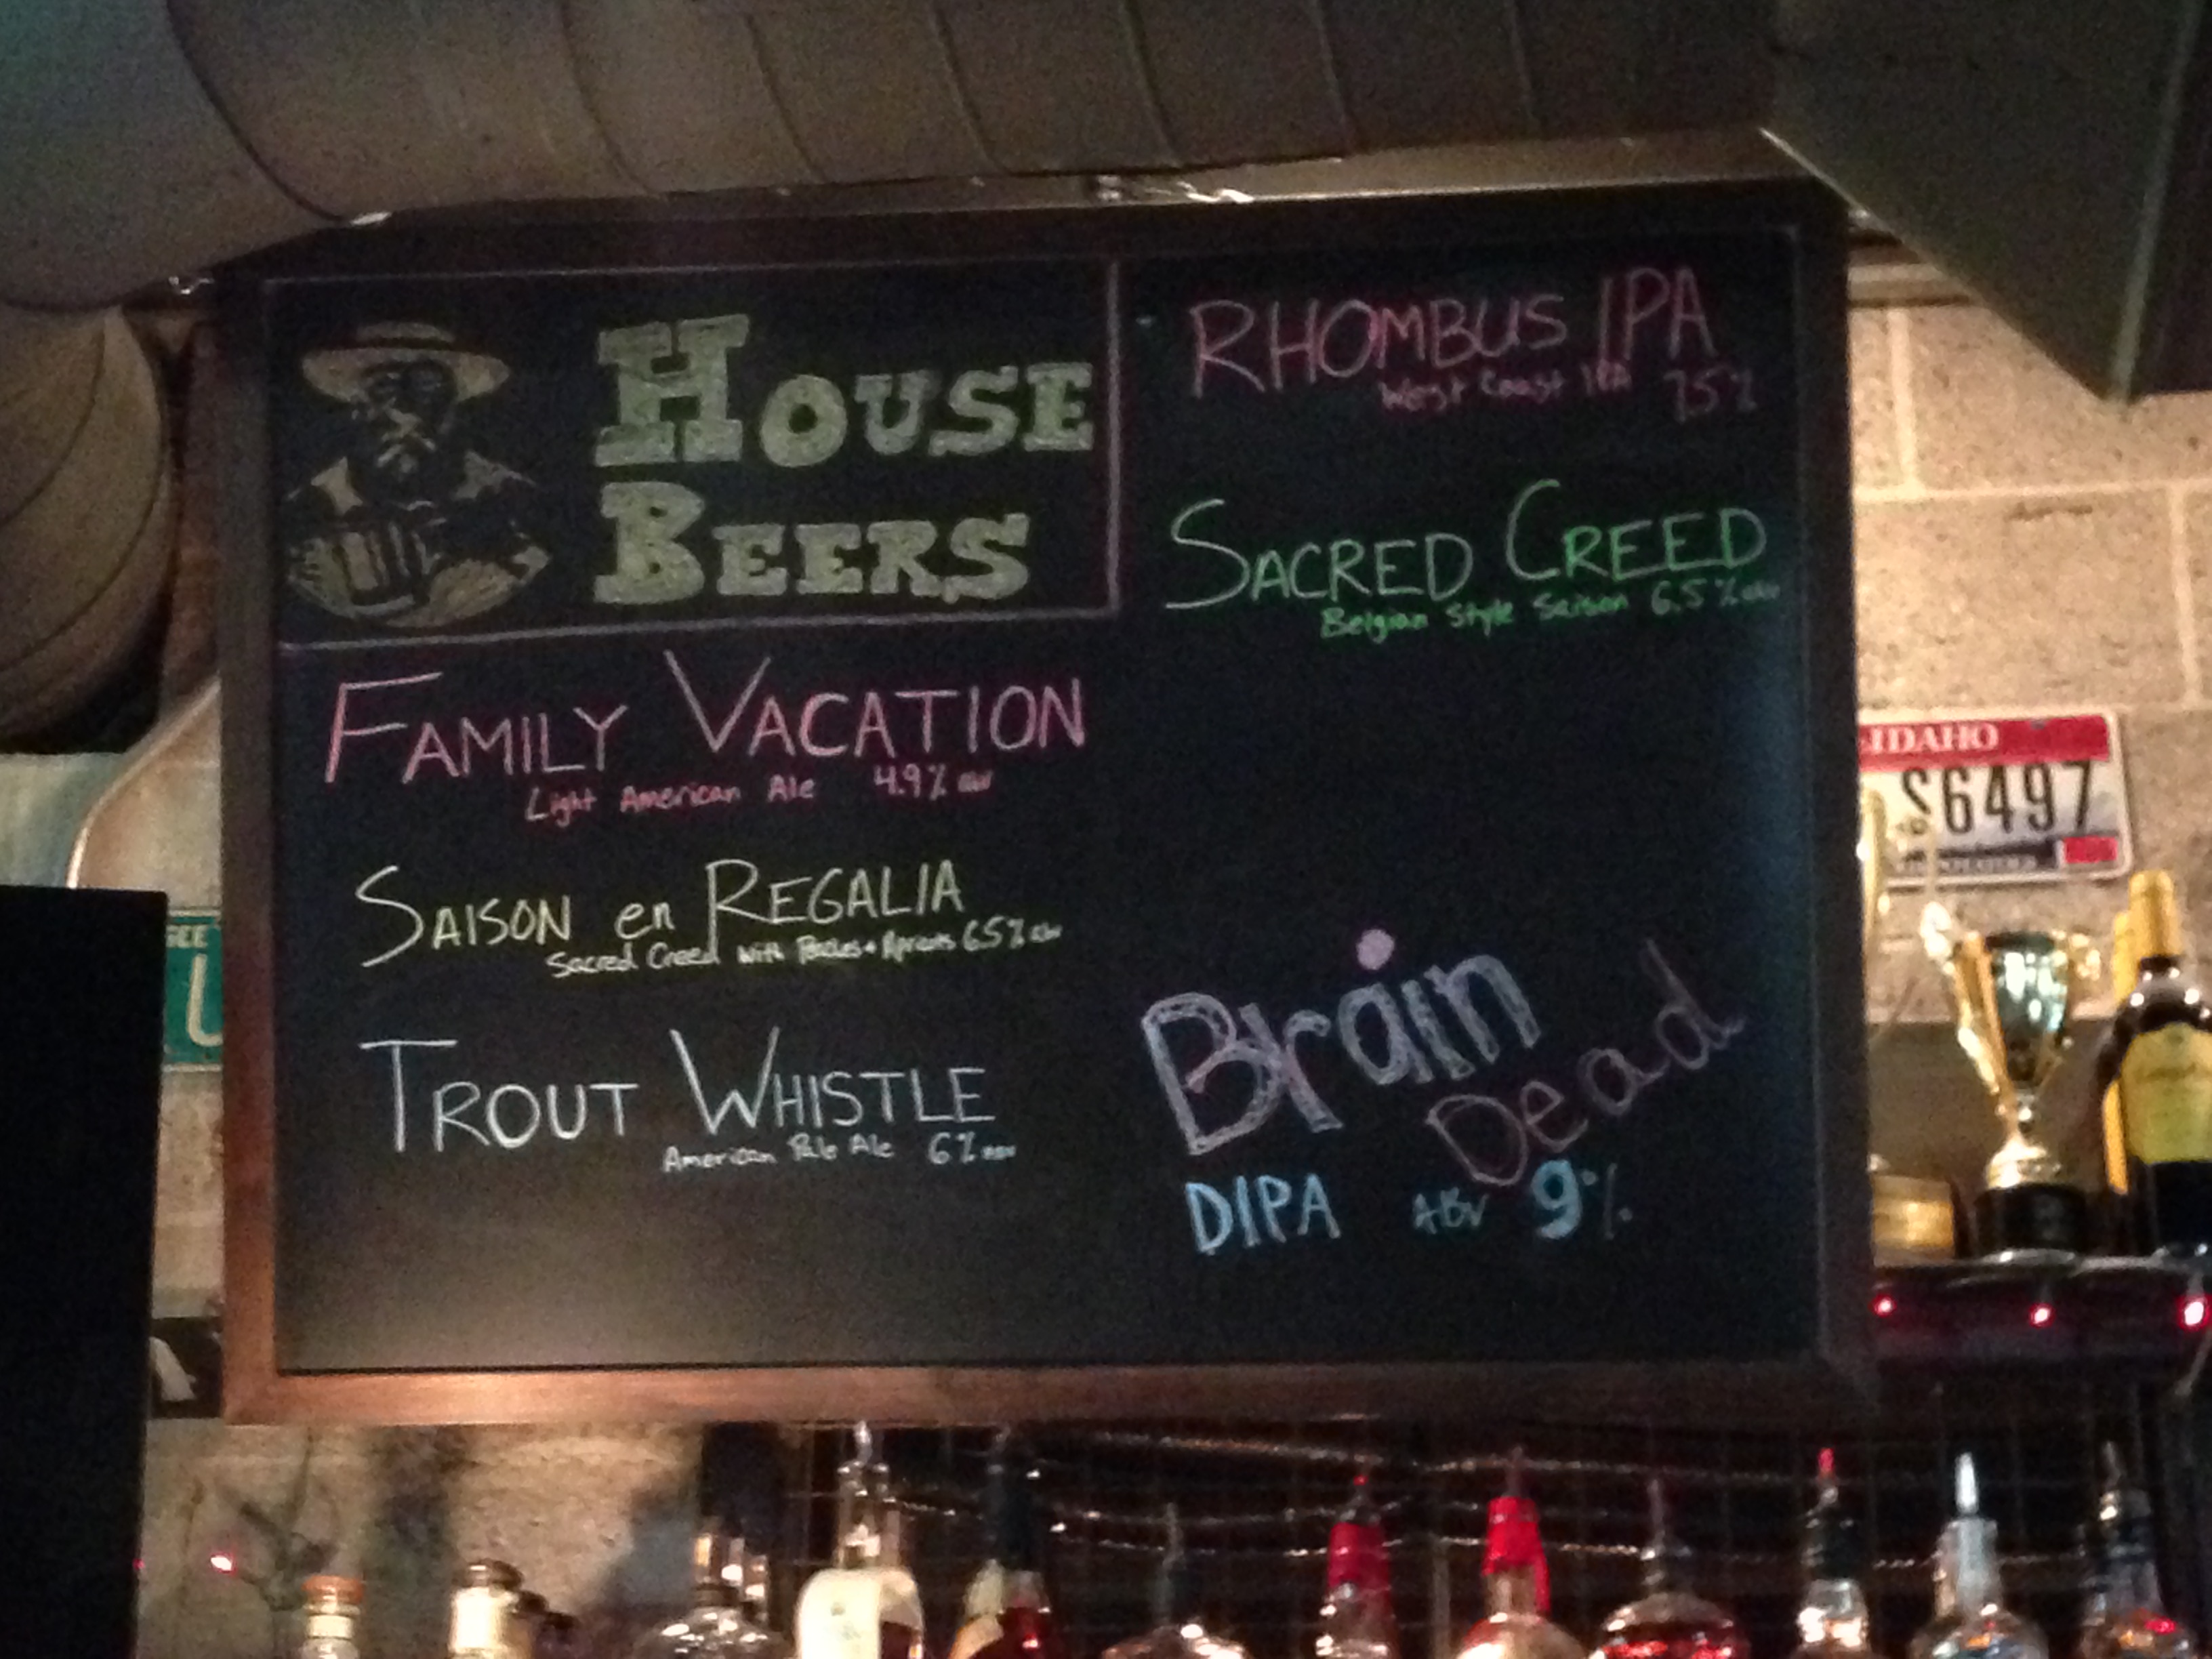 HOUSE
BEERS
FAMILY VACATION
Light American Ale 4.9% ABV
SAISON en REGALIA
Sacred Creed with 6.5% ABV
TROUT WHISTLE
American Pale Ale 6% ABV
RHOMBUS IPA
West Coast IPA 75%
SACRED CREED
Belgian Style Saison 6.5% ABV
Brain
Dead
DIPA ABV 9%
IDAHO
S6497